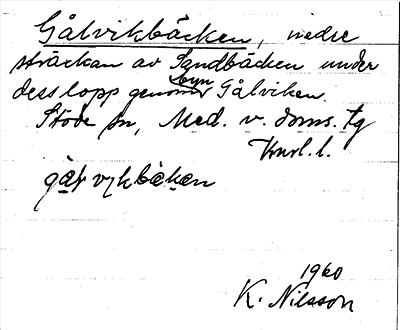 Gålvikbäcken, nedre
sträckan av Sandbäcken under
dess lopp genom byn Gålviken.
Stöde sn, Med. v. doms. tg
l.
1960
K. Nilsson